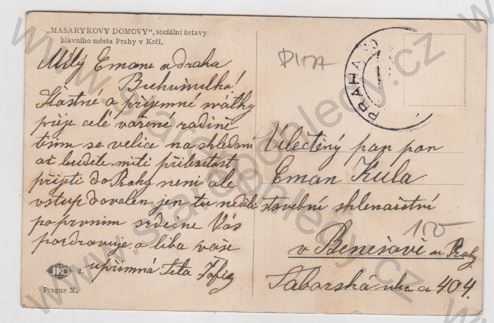 „MASARYKOVY DOMOVY“, sociální ústavy
hlavního města Prahy v Krči.
Milý Emane a drahá
Šťastné a příjemné svátky
přeje celé vážené rodině
těším se velice na shledání
až budete míti příležitost
přijeti do Prahy není ale
vstup dovolen jen tu neděli
po prvním srdečně Vás
pozdravuje a líbá vaše
upřímná teta
Praguc X.
PRAHA
Velectěný pan pan
Eman Kula
stavební sklenářství
v Benešově u Prahy
Táborská ulice 404.
150
www.stare-pohledy.cz